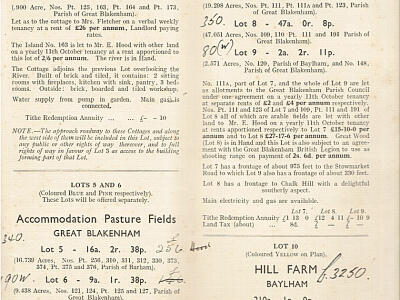 1,900 Acre, Nos. Pt. 125, Pt. 163, Pt. 164 and Pt. 173,
Parish of Great Blakenham).
Let as to the cottage to Mrs. Fletcher on a verbal weekly
tenancy at rent of £26 per annum, Landlord paying
rates.
The Island No. 163 is let to Mr. E. Hood with other land
on a yearly 11th October tenancy at a rent apportioned to
this lot of 2/6 per annum. The river is in Hand.
The Cottage adjoins the previous Lot overlooking the
River. Built of brick and tiled, it contains: 2 sitting
rooms with fireplaces, kitchen with sink, pantry, 3 bed-
rooms. Outside: brick, boarded and tiled workshop.
Water supply from pump in garden. Main gas is
connected.
Tithe Redemption Annuity ... ... £– – 10
NOTE.—The approach roadway to these Cottages and along
the west side of them will be included in this Lot, subject to
any public or other rights of way thereover, and to full
rights of way in favour of Lot 3 as access to the building
forming part of that Lot.
LOTS 5 AND 6
(Coloured Blue and Pink respectively).
These Lots will be offered separately.
Accommodation Pasture Fields
GREAT BLAKENHAM
340. Lot 5 - 16a. 2r. 38p.
(16.739 Acres, Nos. Pt. 256, 310, 311, 312, 330, 373,
374, Pt. 275 and 276, Parish of Barham).
Lot 6 - 9a. 1r. 38p.
(9.438 Acres, Nos. 121, 124, Pt. 125 and 127, Parish of
Great Blakenham)
(19.298 Acres, Nos. 101, 111A and Pt. 123,
Parish of Great Blakenham).
350. Lot 8 - 47a. 0r. 8p.
(47.051 Acres, Nos. 109, 110, 111 Pt. 191 and 194,
Parish of Great Blakenham).
80 (W) Lot 9 - 2a. 2r. 11p.
(2.571 Acres, No. 120, Parish of Baylham, and No. 148,
Parish of Great Blakenham).
No. 111A, part of Lot 7, and the whole of Lot 9 are let
as allotments to the Great Blakenham Parish Council
under one agreement on a yearly 11th October tenancy
at separate rents of £2 and £4 per annum respectively.
Nos. Pt. 111 and 123 of Lot 7 and 109, Pt. 111 and 191 of
Lot 8 all of which are arable fields are let with other
land to Mr. E. Hood on a yearly 11th October tenancy
at rents apportioned respectively to Lot 7 £15-10-0 per
annum and to Lot 8 £27-17-6 per annum. Great Wood
(Lot 8) is in Hand and this Lot is also subject to an agree-
ment with the Great Blakenham British Legion to use as
shooting range on payment of 2s. 6d. per annum.
Lot 7 has a frontage of about 975 feet to the Stowmarket
Road to which Lot 9 also has a frontage of about 230 feet.
Lot 8 has a frontage to Chalk Hill with a delightful
southerly aspect.
Main electricity and gas are available.
Lot 7. Lot 8. Lot 9.
Tithe Redemption Annuity £1 13 0 £12 4 11 £– 10 9
Land Tax (about) ... 8d.
LOT 10
(Coloured YELLOW on Plan).
HILL FARM £3250.
BAYLHAM